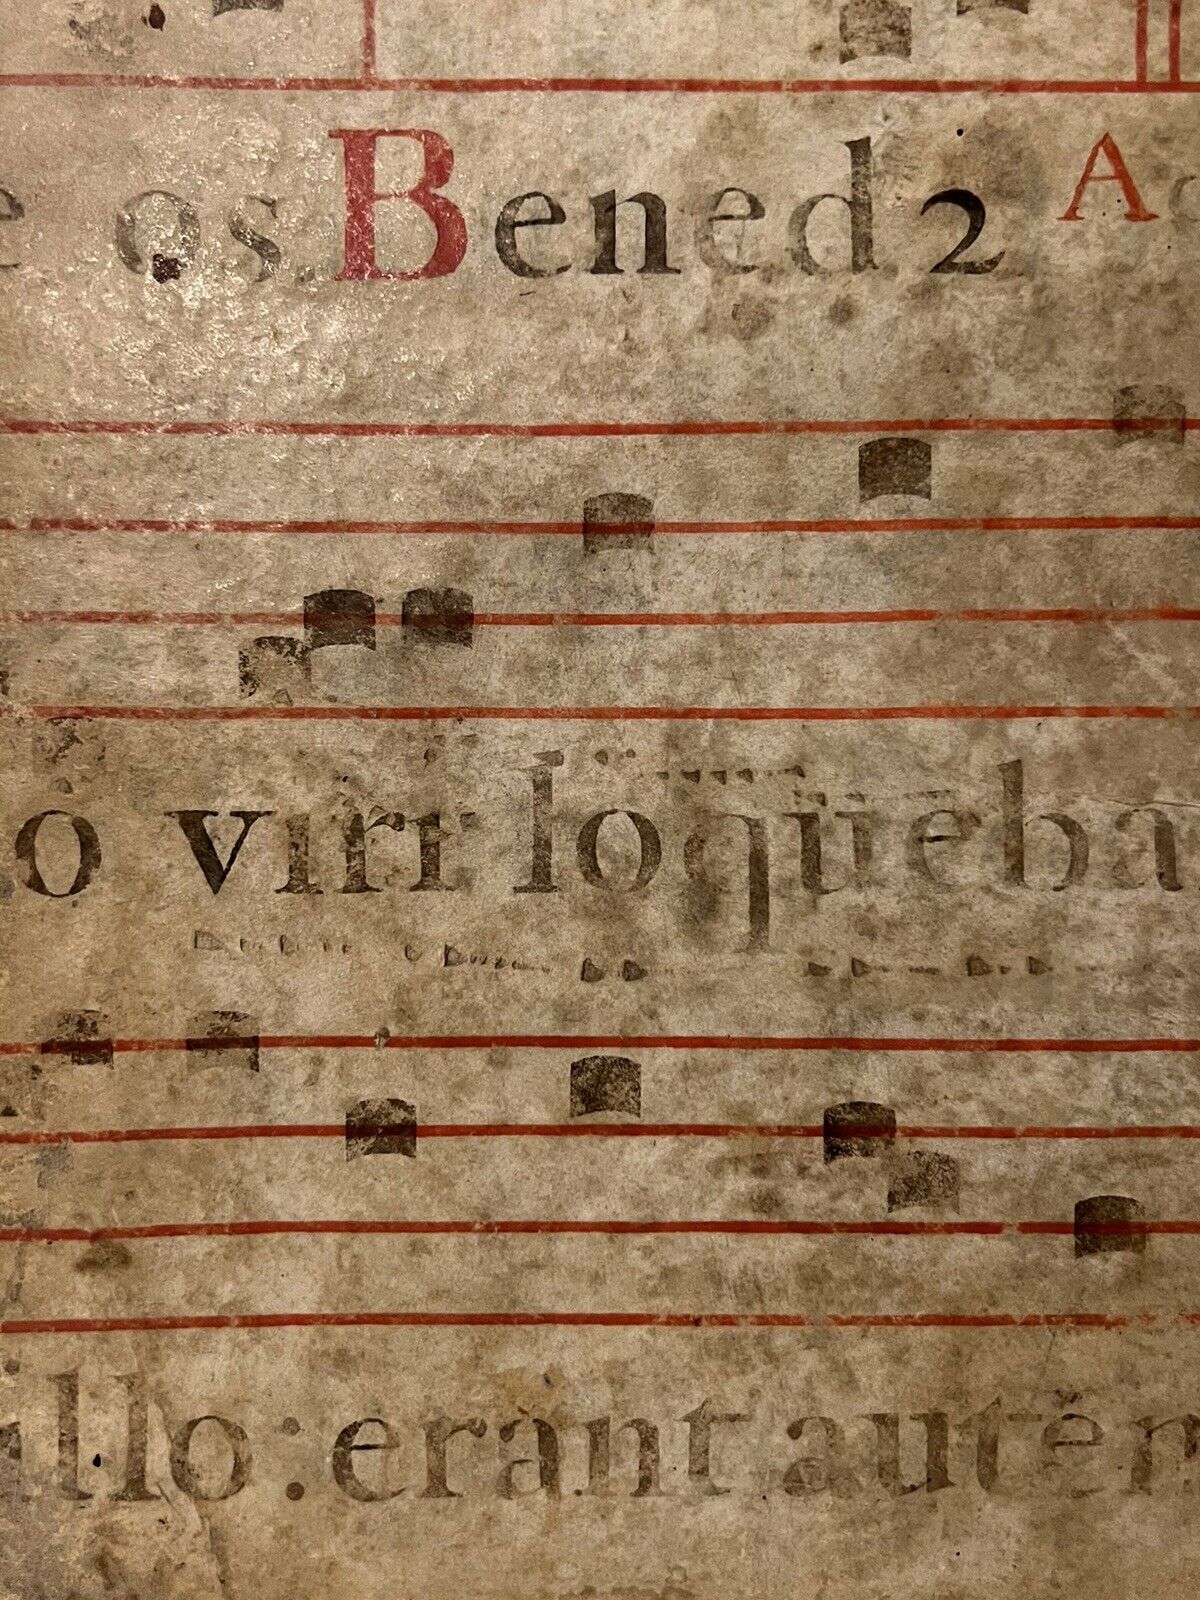 e os Bened 2 A
o viri loqueba
llo: erant autem